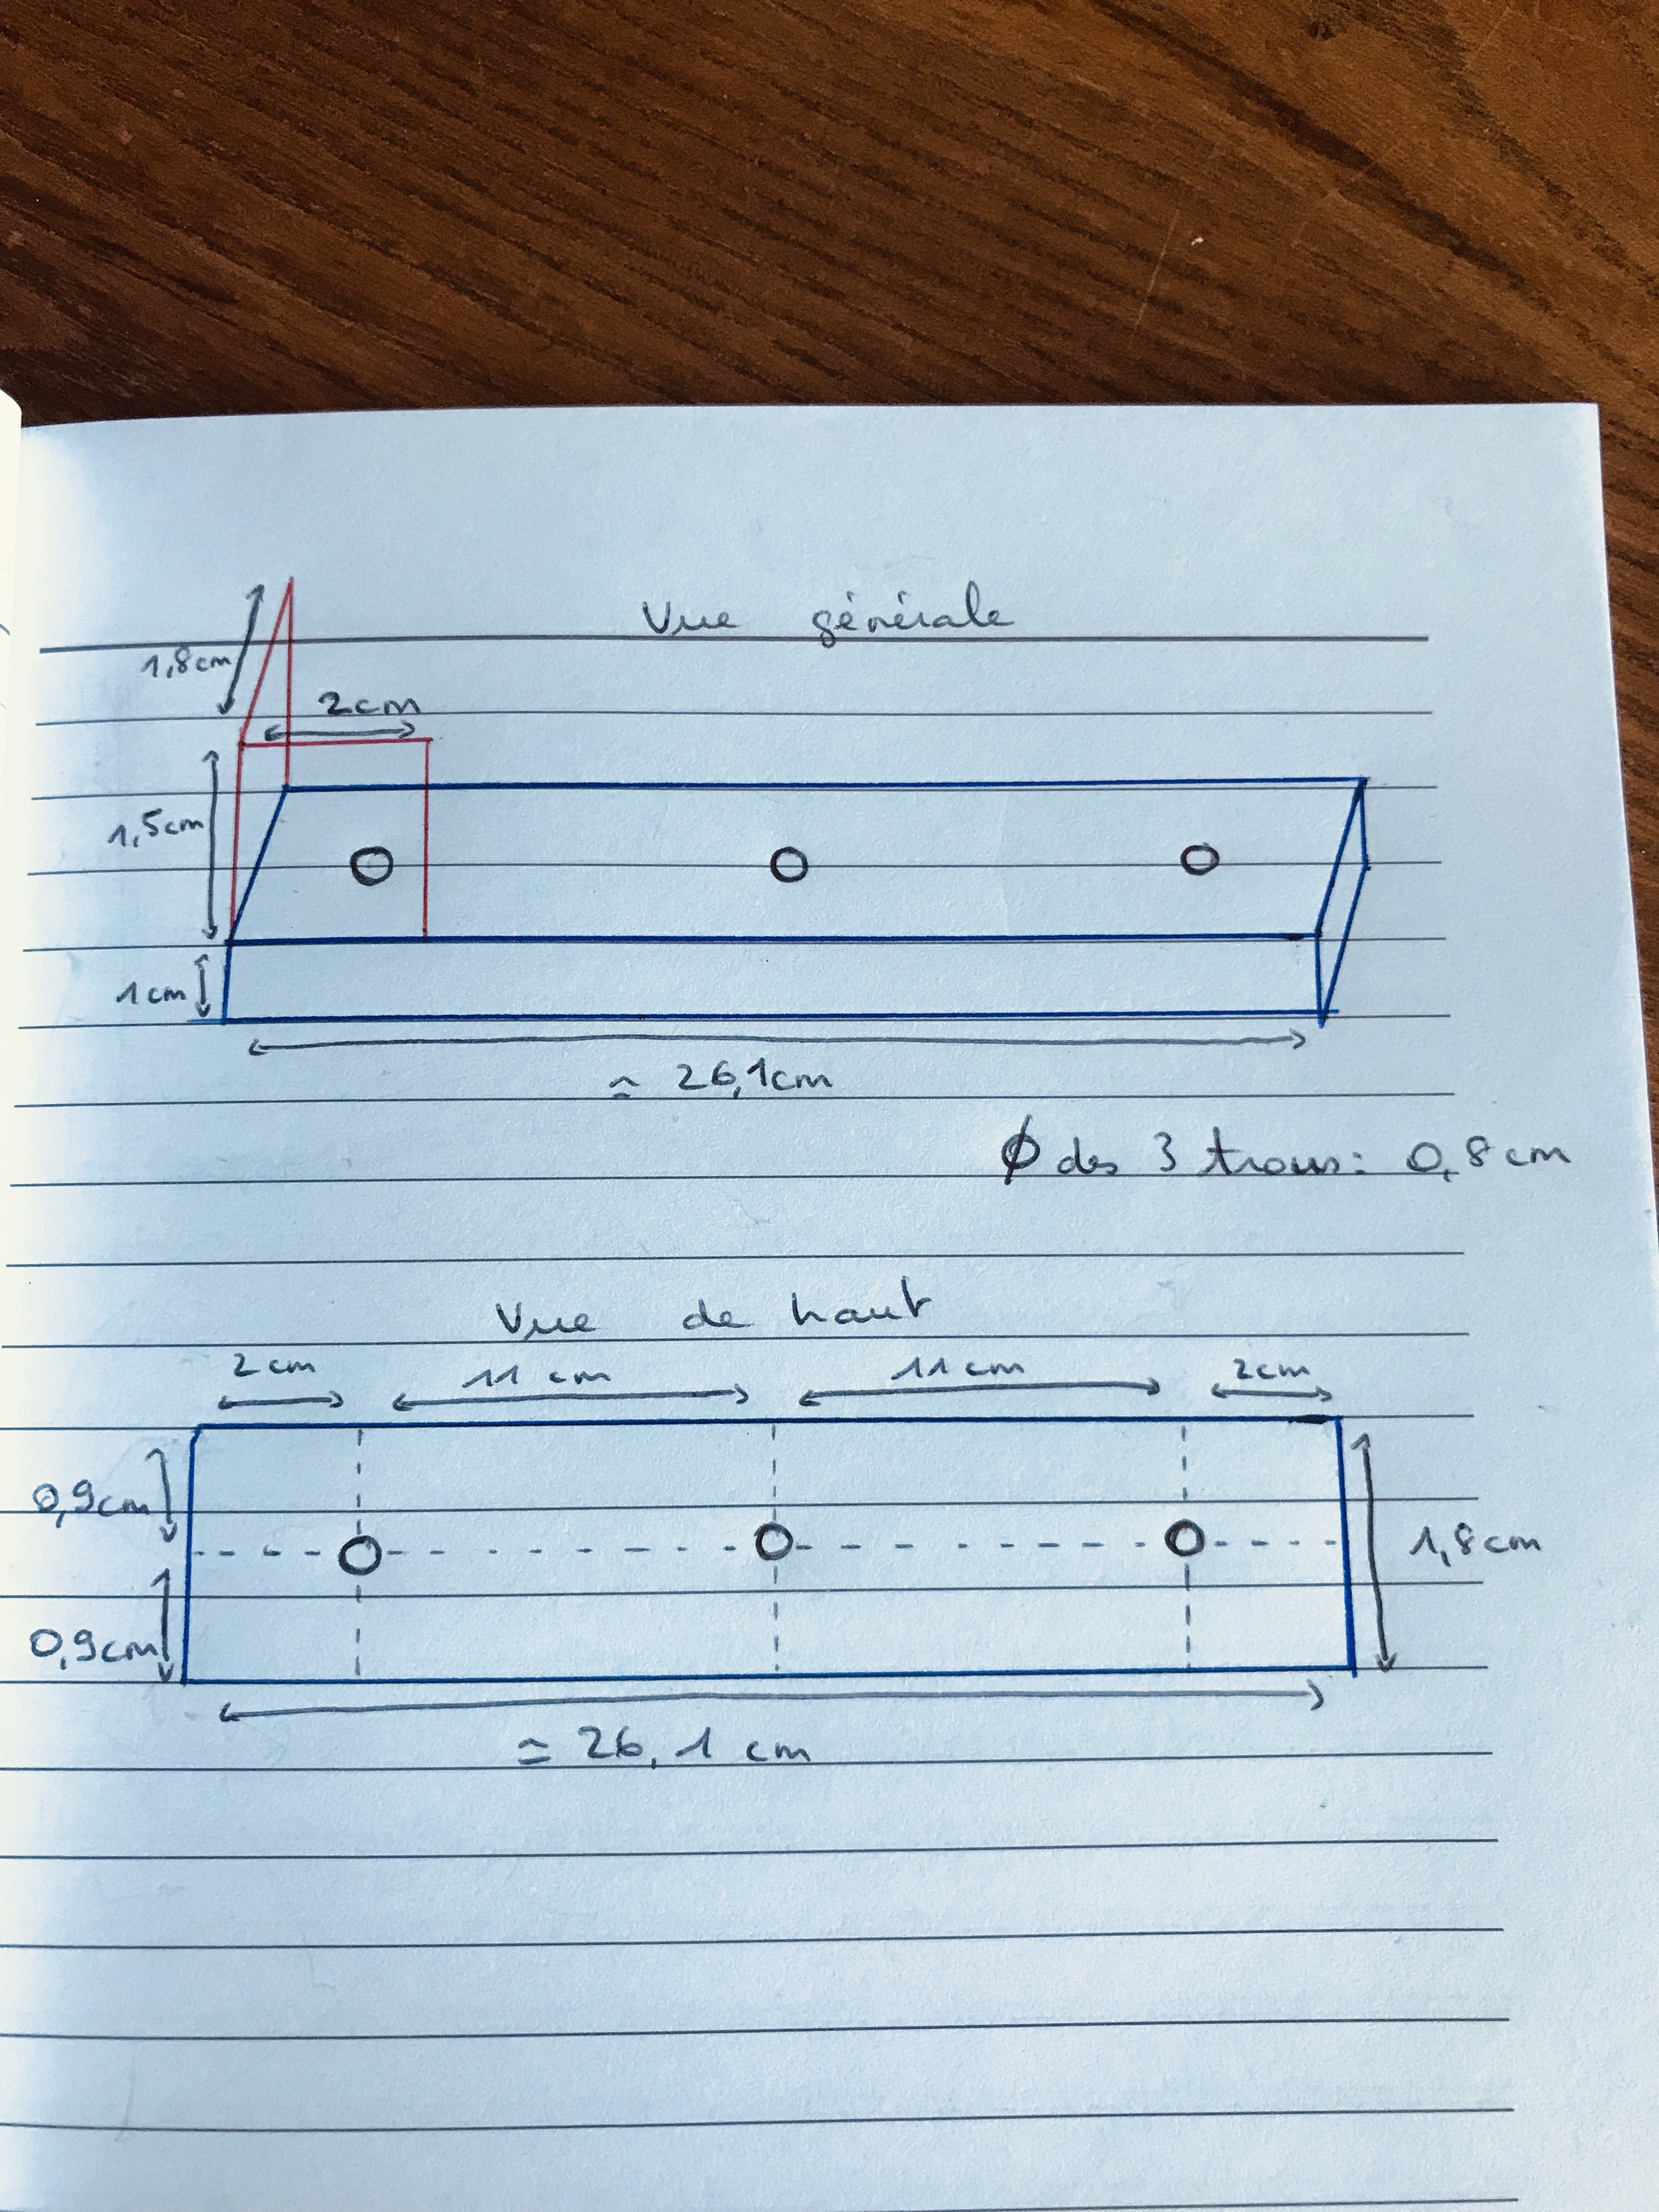 Vue générale
1,8cm
2cm
1,5cm
1cm
≃ 26,1cm
Ø des 3 trous: 0,8cm
Vue de haut
2cm 11cm 11cm 2cm
0,9cm
1,8cm
0,9cm
≃ 26,1 cm